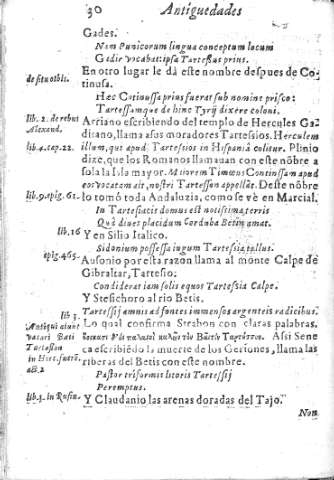 30 Antiguedades
Gades.
Nam Punicorum lingua conceptum locum
Gadir vocabat: ipsa Tartessus prius.
de situ orbis.
En otro lugar le dá este nombre despues de Co-
tinusa.
Hæc Cotinussa prius fuerat sub nomine prisco:
Tartessumque de hinc Tyrij dixere coloni.
lib. 2. de rebus
Alexand.
Arriano escribiendo del templo de Hercules Ga-
ditano, llama a sus moradores Tartessios. Herculem
lib. 4. cap. 22.
illum, qui apud Tartessios in Hispaniâ colitur. Plinio
dize, que los Romanos llamauan con este nõbre a
sola la Isla mayor. Maiorem Timæus Continussam apud
eos vocatam ait, nostri Tartesson appellãt. Deste nõbre
lib. 9. epig. 62.
lo tomó toda Andaluzia, como se vè en Marcial.
In Tartessiacis domus est notissima terris
Quà diues placidum Corduba Betin amat.
lib. 16
Y en Silio Italico.
Sidonium possessa iugum Tartessia tellus.
epig. 465.
Ausonio por esta razon llama al monte Calpe de
Gibraltar, Tartesio.
Condiderat iam solis equos Tartesia Calpe.
Y Stesichoro al rio Betis.
Tartessij amnis ad fontes immensos argenteis radicibus.
lib. 3.
Antiqui aiunt
vocari Bati
Tartesson
Lo qual confirma Strabon con claras palabras.
Assi Sene
in Herc. furẽ.
act. 2
ca escribiẽdo la muerte de los Geriones, llama las
riberas del Betis con este nombre.
Pastor triformis litoris Tartessij
Peremptus.
lib. 1. in Rufin.
Y Claudanio las arenas doradas del Tajo.
Non